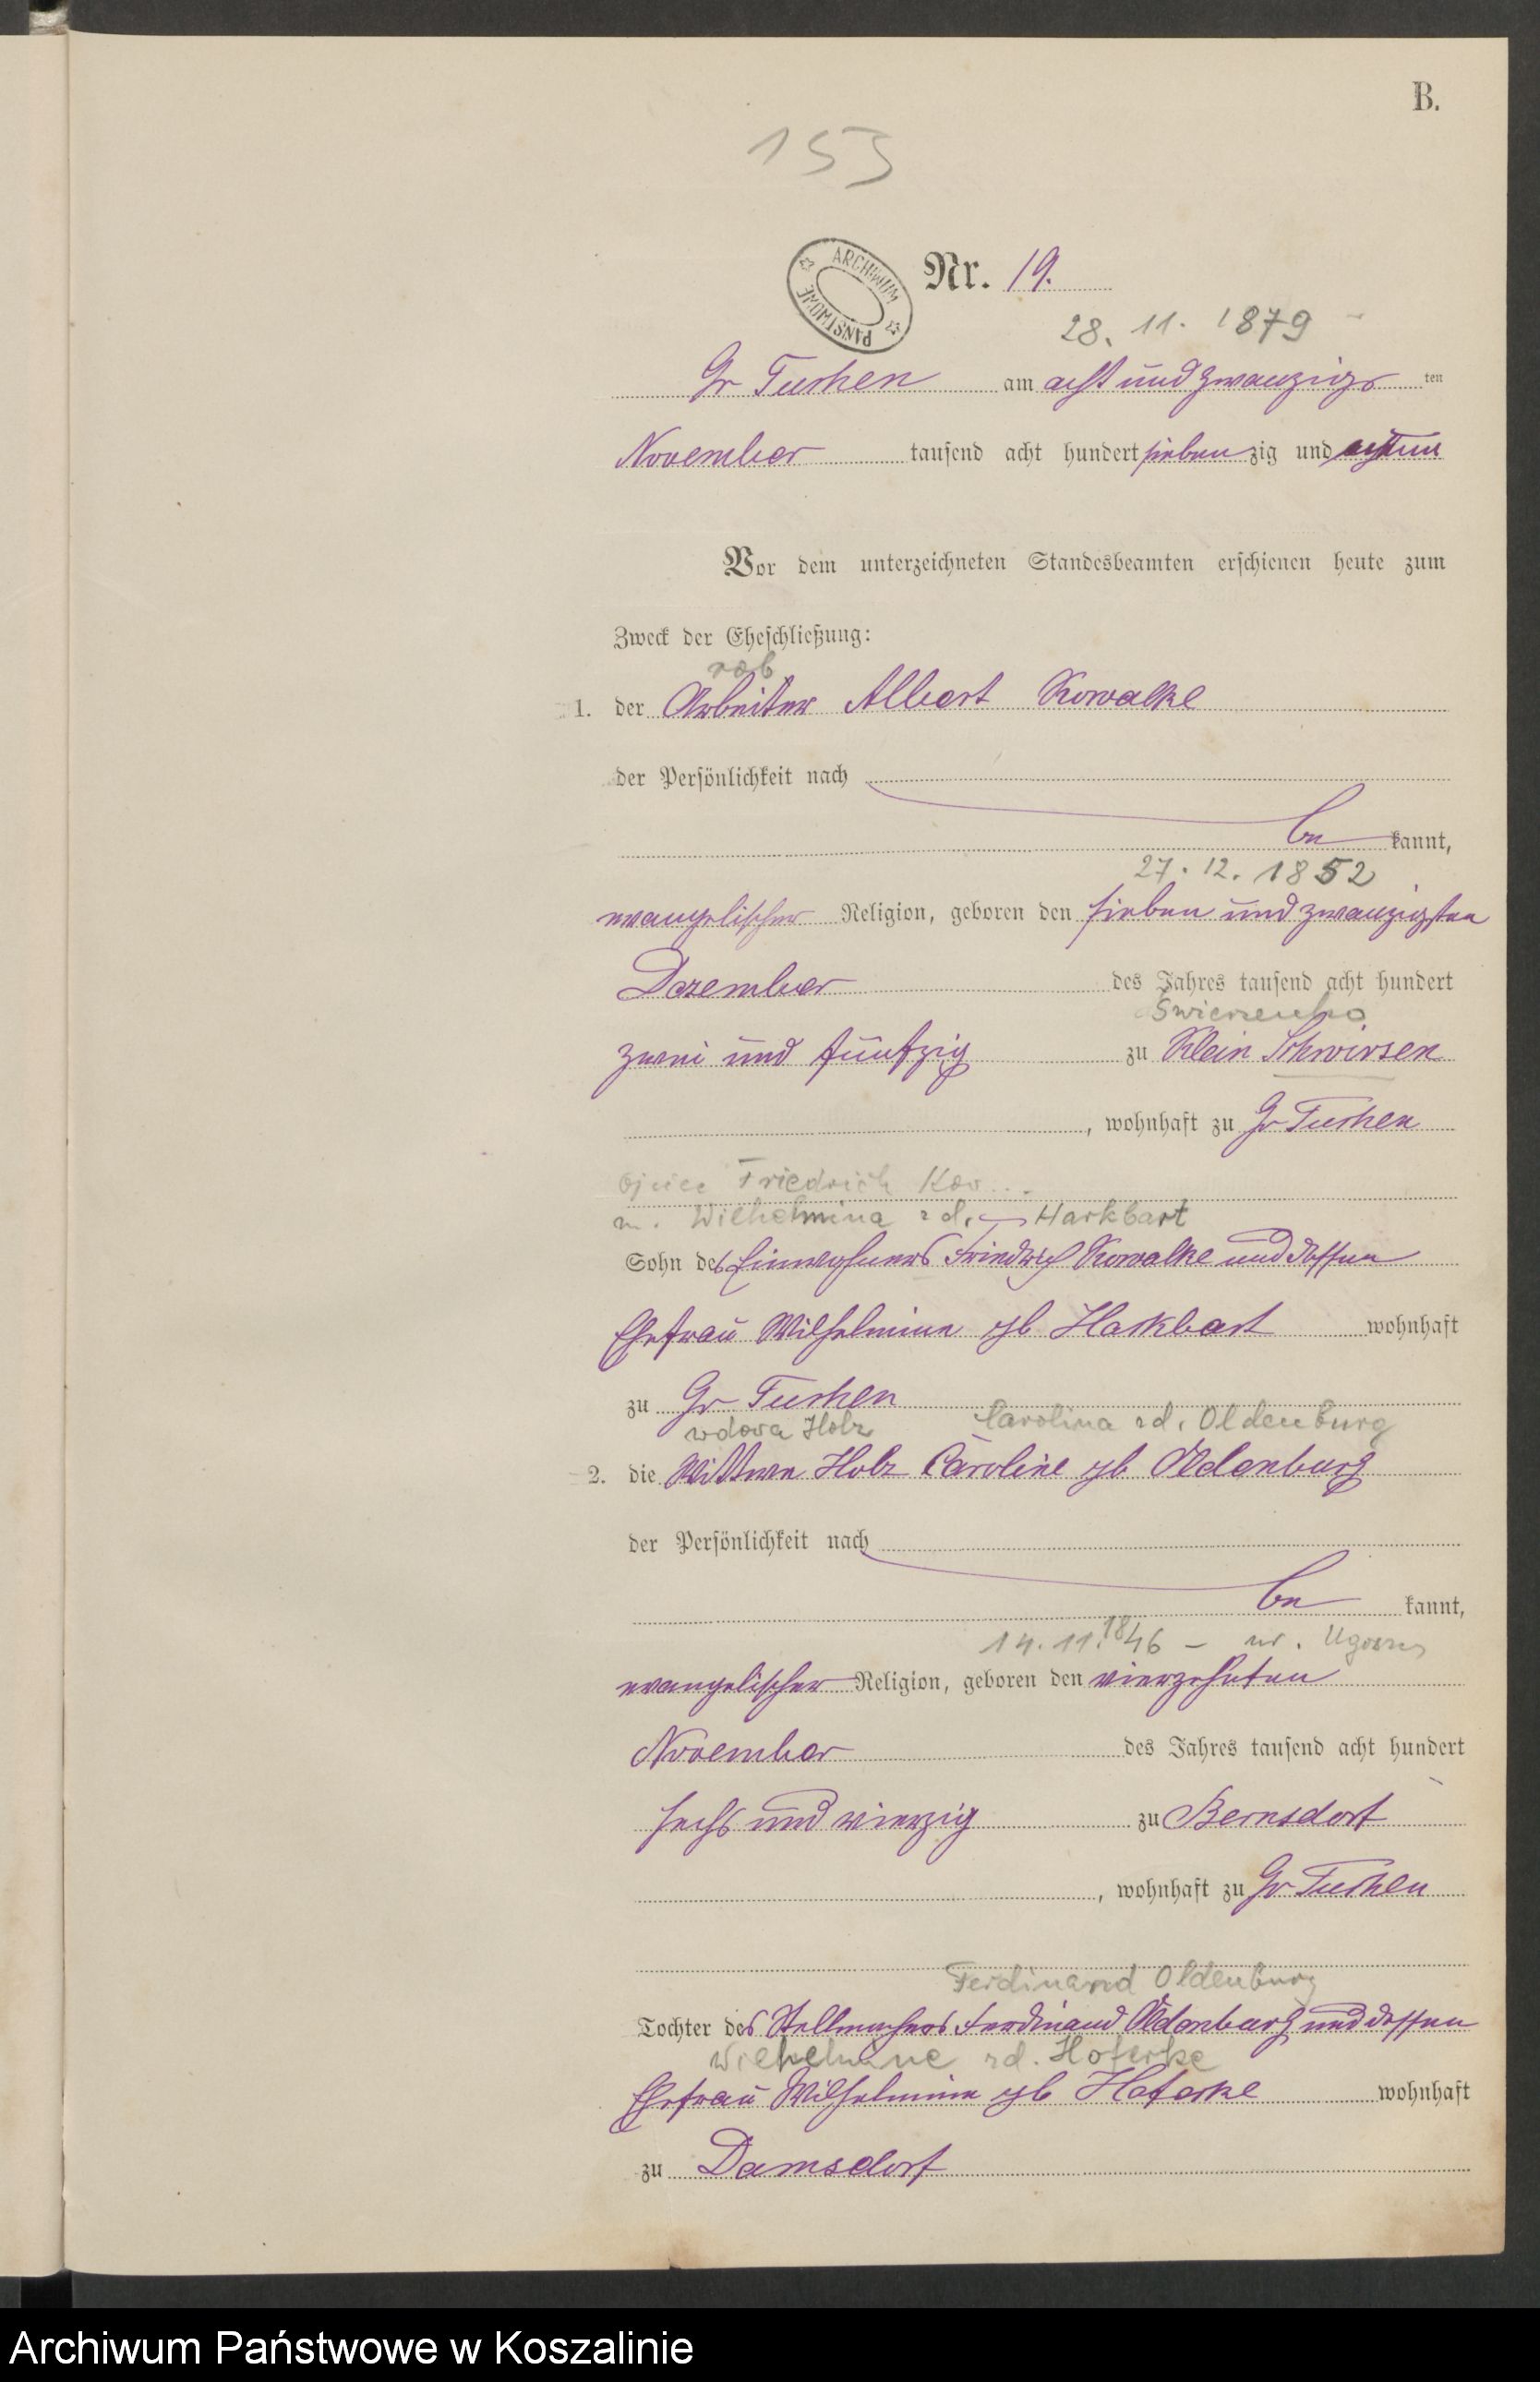 B.
153
ARCHIWUM PAŃSTWOWE
Nr. 19.
28. 11. 1879
Gr Tuchen am acht und zwanzigs ten
November tausend acht hundert sieben zig und
Vor dem unterzeichneten Standesbeamten erschienen heute zum
Zweck der Eheschließung:
rob
1. der Arbeiter Albert Kowalke
der Persönlichkeit nach
be kannt,
27. 12. 1852
evangelischer Religion, geboren den sieben und zwanzigsten
Dezember des Jahres tausend acht hundert
Świerzenko
zwei und fünfzig zu Klein Schwirsen
, wohnhaft zu Gr Tuchen
ojciec Friedrich Kow...
m. Wilhelmina zd. Harkbart
Sohn des Einwohners Friedrich Kowalke und dessen
Ehefrau Wilhelmine gb Harkbart wohnhaft
zu Gr Tuchen
wdova Holz Carolina zd. Oldenburg
2. die Wittwe Holz Caroline gb Oldenburg
der Persönlichkeit nach
be kannt,
14. 11. 1846 – ur. Ugoszcz
evangelischer Religion, geboren den vierzehnten
November des Jahres tausend acht hundert
sechs und vierzig zu Bernsdorf
, wohnhaft zu Gr Tuchen
Ferdinand Oldenburg
Tochter des Stellmachers Ferdinand Oldenburg und dessen
Wilhelmine zd. Hoferke
Ehefrau Wilhelmine gb Haferke wohnhaft
zu Damsdorf
Archiwum Państwowe w Koszalinie